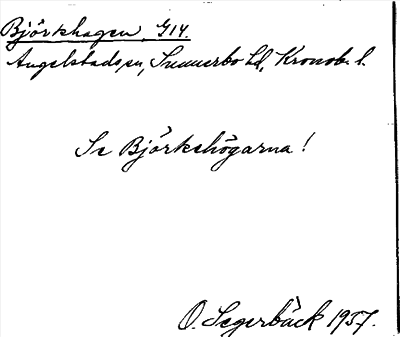 Björkhagen G14.
Angelstads sn, Sunnerbo hd, Kronob. l.
Se Björkehögarna!
O. Segerbäck 1937.